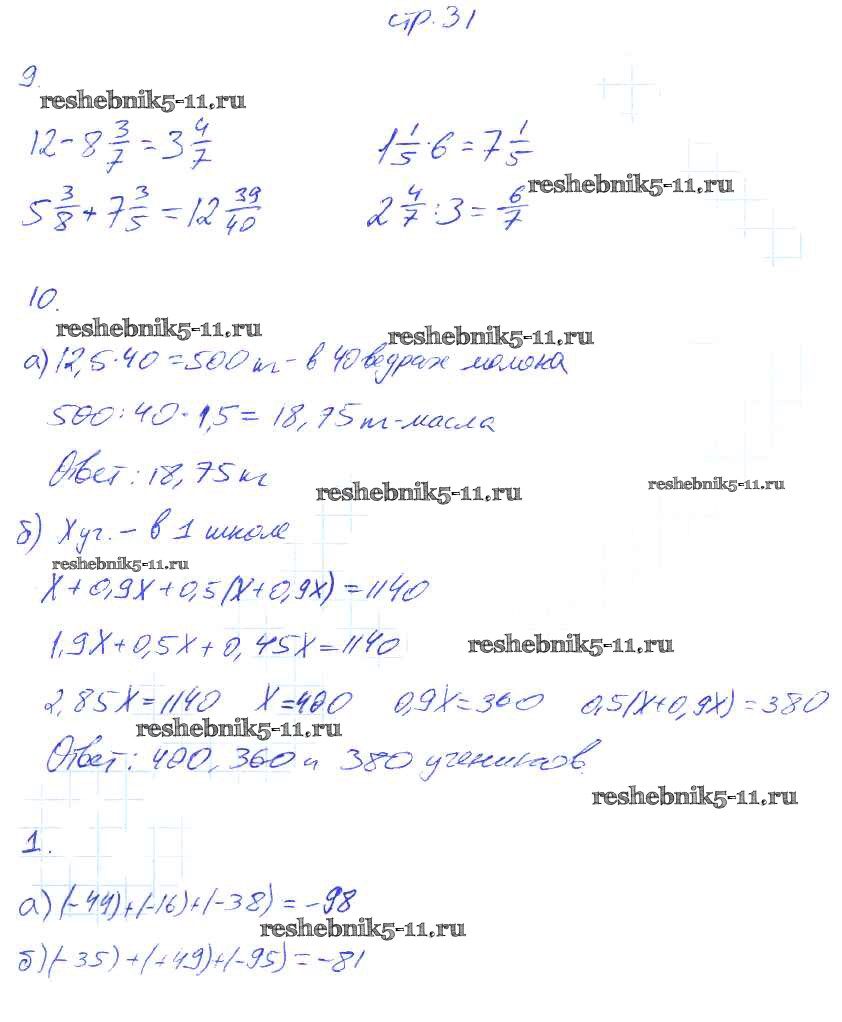 стр. 31
9.
reshebnik5-11.ru
12 - 8 3/7 = 3 4/7 1 1/5 · 6 = 7 1/5
reshebnik5-11.ru
5 3/8 + 7 3/5 = 12 39/40 2 4/7 : 3 = 6/7
10.
reshebnik5-11.ru reshebnik5-11.ru
а) 12,5 · 40 = 500 кг - в 40 ведрах молока
500 : 40 · 1,5 = 18,75 кг - масла
Ответ: 18,75 кг
reshebnik5-11.ru reshebnik5-11.ru
б) X уч. - в 1 школе
reshebnik5-11.ru
X + 0,9X + 0,5(X + 0,9X) = 1140
1,9X + 0,5X + 0,45X = 1140 reshebnik5-11.ru
2,85X = 1140 X = 400 0,9X = 360 0,5(X + 0,9X) = 380
reshebnik5-11.ru
Ответ: 400, 360 и 380 учеников.
reshebnik5-11.ru
1.
а) (-44) + (-16) + (-38) = -98
reshebnik5-11.ru
б) (-35) + (+49) + (-95) = -81